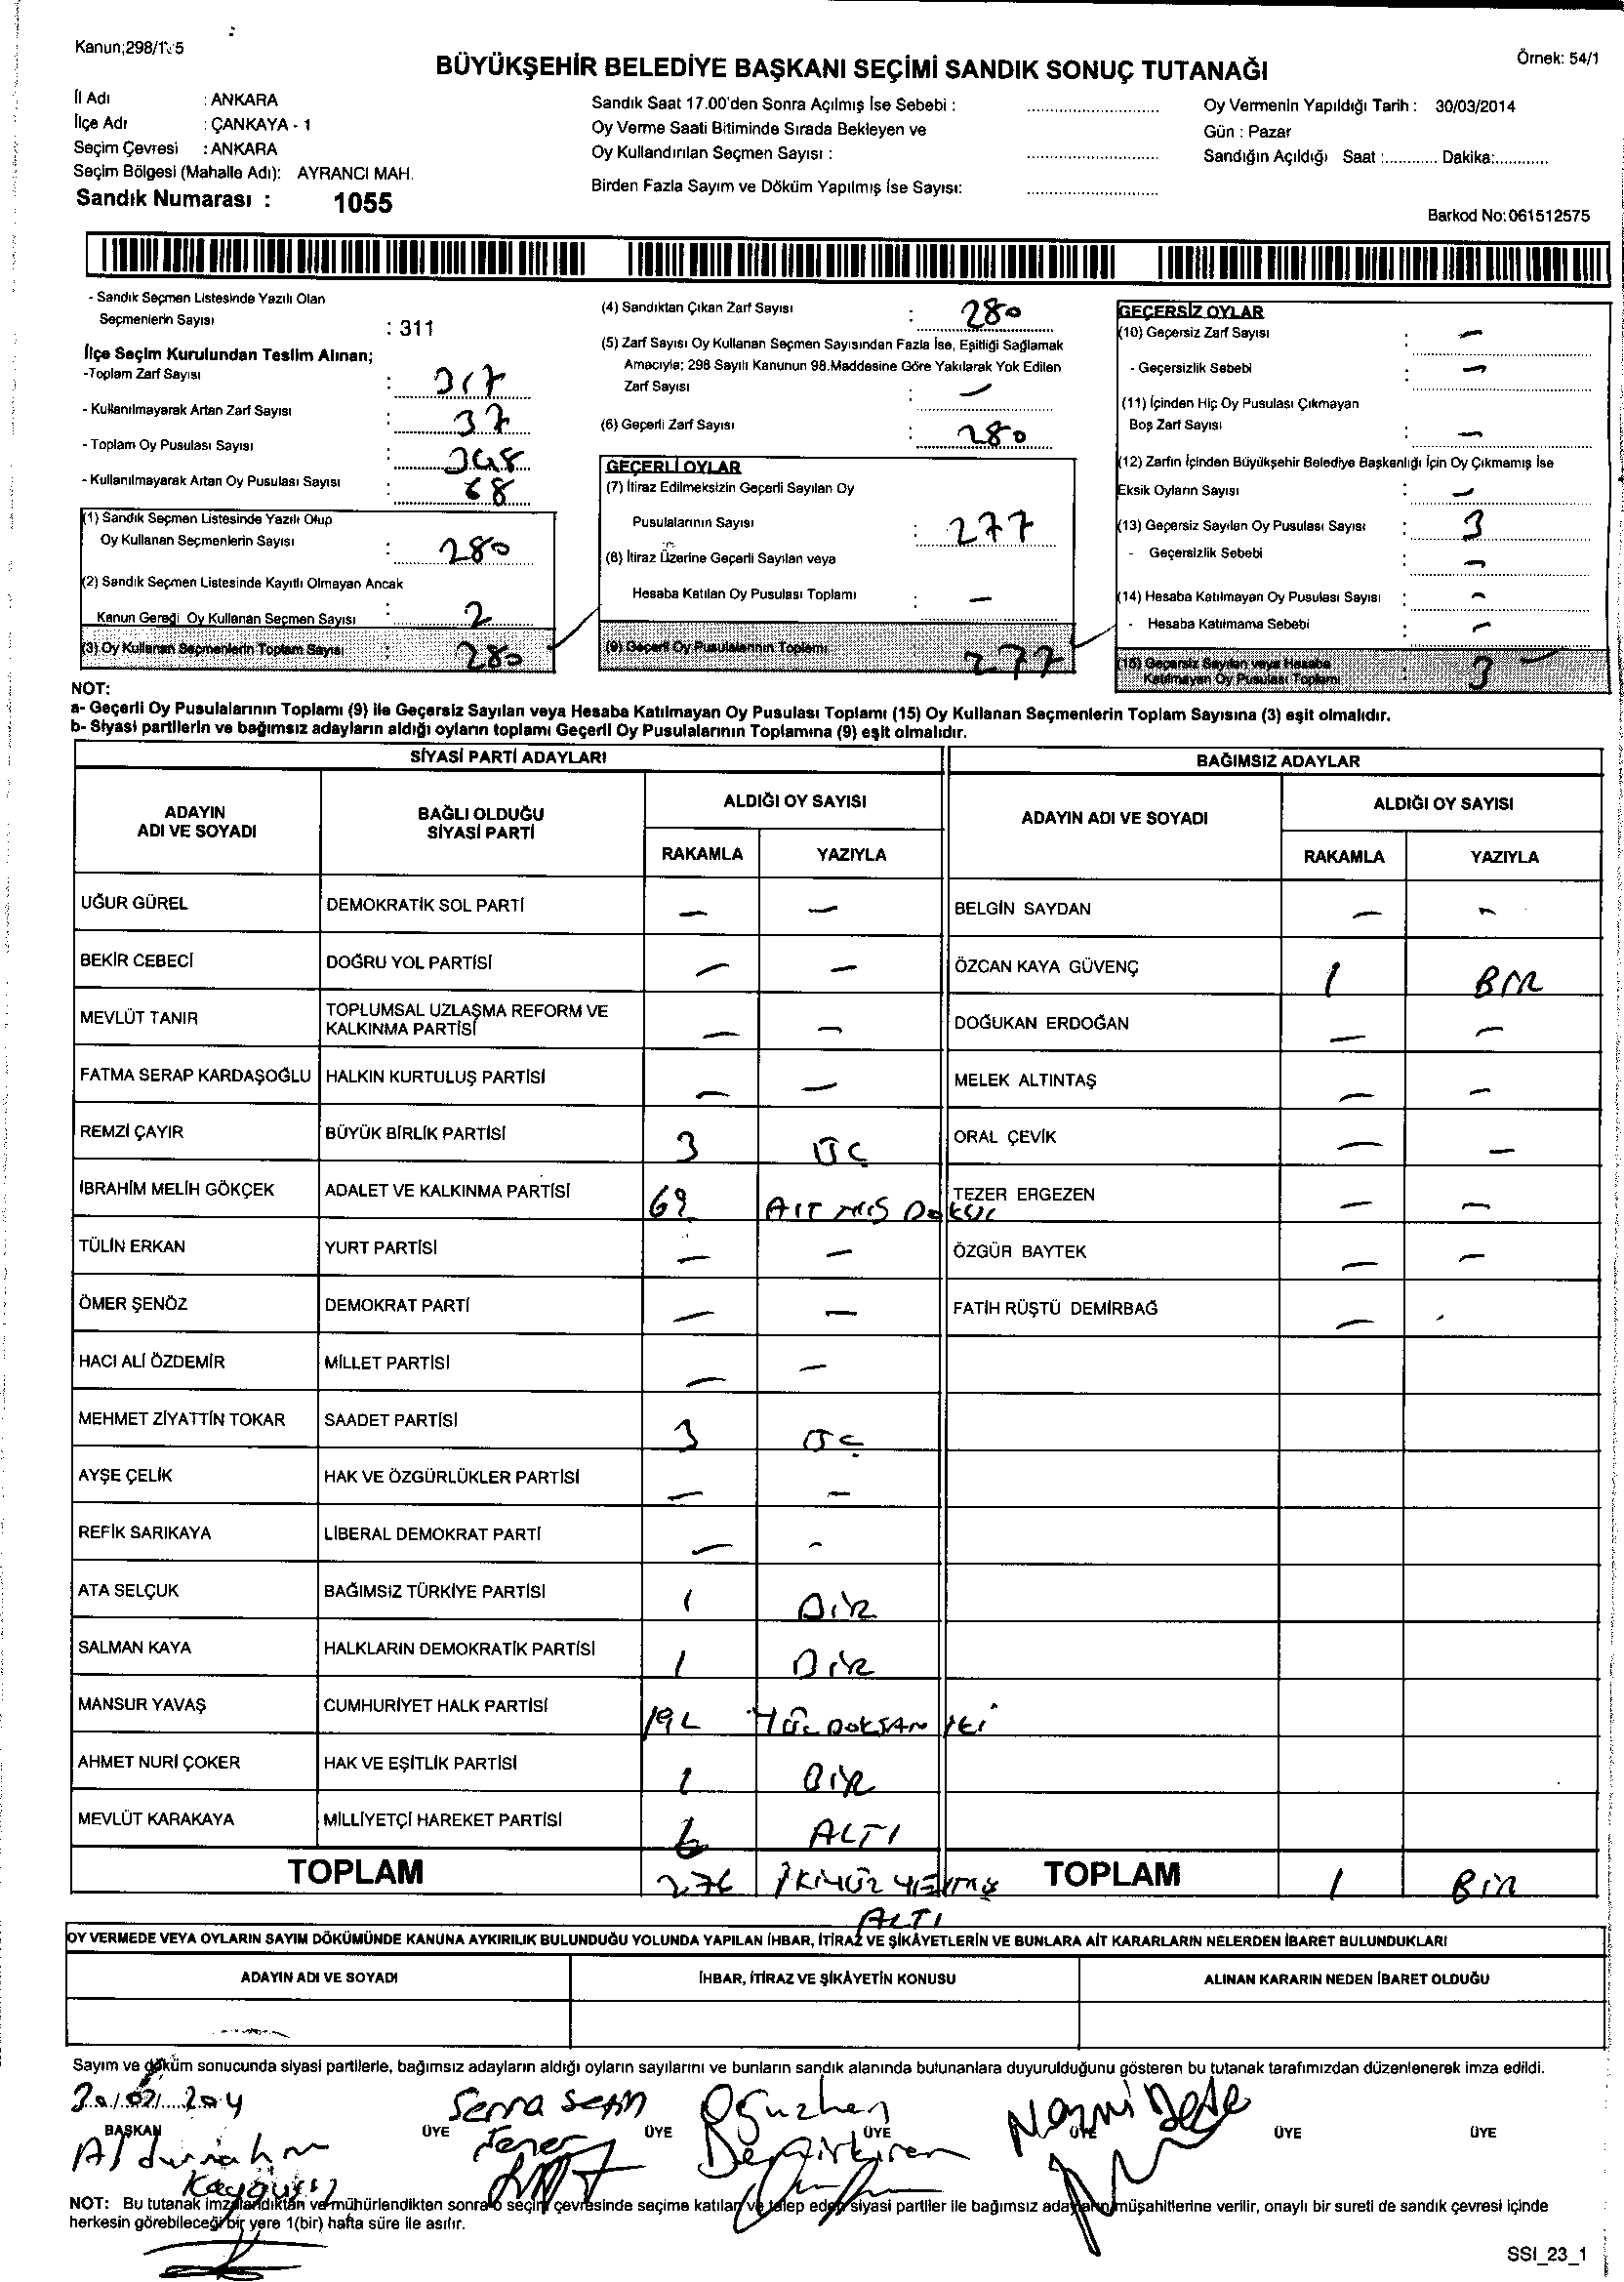 Kanun;298/1 5
Örnek: 54/1
BÜYÜKŞEHİR BELEDİYE BAŞKANI SEÇİMİ SANDIK SONUÇ TUTANAĞI
İl Adı : ANKARA
İlçe Adı : ÇANKAYA - 1
Seçim Çevresi : ANKARA
Seçim Bölgesi (Mahalle Adı): AYRANCI MAH.
Sandık Numarası : 1055
Sandık Saat 17.00'den Sonra Açılmış İse Sebebi :
Oy Verme Saati Bitiminde Sırada Bekleyen ve
Oy Kullandırılan Seçmen Sayısı :
Birden Fazla Sayım ve Döküm Yapılmış İse Sayısı:
Oy Vermenin Yapıldığı Tarih : 30/03/2014
Gün : Pazar
Sandığın Açıldığı Saat :............ Dakika:............
Barkod No:061512575
- Sandık Seçmen Listesinde Yazılı Olan
Seçmenlerin Sayısı : 311
İlçe Seçim Kurulundan Teslim Alınan;
-Toplam Zarf Sayısı : 317
- Kullanılmayarak Artan Zarf Sayısı : 37
- Toplam Oy Pusulası Sayısı : 348
- Kullanılmayarak Artan Oy Pusulası Sayısı : 68
(1) Sandık Seçmen Listesinde Yazılı Olup
Oy Kullanan Seçmenlerin Sayısı : 280
(2) Sandık Seçmen Listesinde Kayıtlı Olmayan Ancak
Kanun Gereği Oy Kullanan Seçmen Sayısı : 2
(3) Oy Kullanan Seçmenlerin Toplam Sayısı : 280
(4) Sandıktan Çıkan Zarf Sayısı : 280
(5) Zarf Sayısı Oy Kullanan Seçmen Sayısından Fazla İse, Eşitliği Sağlamak
Amacıyla; 298 Sayılı Kanunun 98.Maddesine Göre Yakılarak Yok Edilen
Zarf Sayısı : —
(6) Geçerli Zarf Sayısı : 280
GEÇERLİ OYLAR
(7) İtiraz Edilmeksizin Geçerli Sayılan Oy
Pusulalarının Sayısı : 277
(8) İtiraz Üzerine Geçerli Sayılan veya
Hesaba Katılan Oy Pusulası Toplamı : —
(9) Geçerli Oy Pusulalarının Toplamı : 277
GEÇERSİZ OYLAR
(10) Geçersiz Zarf Sayısı : —
- Geçersizlik Sebebi : —
(11) İçinden Hiç Oy Pusulası Çıkmayan
Boş Zarf Sayısı : —
(12) Zarfın İçinden Büyükşehir Belediye Başkanlığı İçin Oy Çıkmamış İse
Eksik Oyların Sayısı : —
(13) Geçersiz Sayılan Oy Pusulası Sayısı : 3
- Geçersizlik Sebebi : —
(14) Hesaba Katılmayan Oy Pusulası Sayısı : —
- Hesaba Katılmama Sebebi : —
(15) Geçersiz Sayılan veya Hesaba
Katılmayan Oy Pusulası Toplamı : 3
NOT:
a- Geçerli Oy Pusulalarının Toplamı (9) ile Geçersiz Sayılan veya Hesaba Katılmayan Oy Pusulası Toplamı (15) Oy Kullanan Seçmenlerin Toplam Sayısına (3) eşit olmalıdır.
b- Siyasi partilerin ve bağımsız adayların aldığı oyların toplamı Geçerli Oy Pusulalarının Toplamına (9) eşit olmalıdır.
SİYASİ PARTİ ADAYLARI
ADAYIN ADI VE SOYADI
BAĞLI OLDUĞU SİYASİ PARTİ
ALDIĞI OY SAYISI
RAKAMLA YAZIYLA
UĞUR GÜREL DEMOKRATİK SOL PARTİ — —
BEKİR CEBECİ DOĞRU YOL PARTİSİ — —
MEVLÜT TANIR TOPLUMSAL UZLAŞMA REFORM VE KALKINMA PARTİSİ — —
FATMA SERAP KARDAŞOĞLU HALKIN KURTULUŞ PARTİSİ — —
REMZİ ÇAYIR BÜYÜK BİRLİK PARTİSİ 3 ÜÇ
İBRAHİM MELİH GÖKÇEK ADALET VE KALKINMA PARTİSİ 69 ALTMIŞ DOKUZ
TÜLİN ERKAN YURT PARTİSİ — —
ÖMER ŞENÖZ DEMOKRAT PARTİ — —
HACI ALİ ÖZDEMİR MİLLET PARTİSİ — —
MEHMET ZİYATTİN TOKAR SAADET PARTİSİ 3 ÜÇ
AYŞE ÇELİK HAK VE ÖZGÜRLÜKLER PARTİSİ — —
REFİK SARIKAYA LİBERAL DEMOKRAT PARTİ — —
ATA SELÇUK BAĞIMSIZ TÜRKİYE PARTİSİ 1 BİR
SALMAN KAYA HALKLARIN DEMOKRATİK PARTİSİ 1 BİR
MANSUR YAVAŞ CUMHURİYET HALK PARTİSİ 192 YÜZ DOKSAN İKİ
AHMET NURİ ÇOKER HAK VE EŞİTLİK PARTİSİ 1 BİR
MEVLÜT KARAKAYA MİLLİYETÇİ HAREKET PARTİSİ 6 ALTI
TOPLAM 276 İKİYÜZ YETMİŞ ALTI
BAĞIMSIZ ADAYLAR
ADAYIN ADI VE SOYADI
ALDIĞI OY SAYISI
RAKAMLA YAZIYLA
BELGİN SAYDAN — —
ÖZCAN KAYA GÜVENÇ 1 BİR
DOĞUKAN ERDOĞAN — —
MELEK ALTINTAŞ — —
ORAL ÇEVİK — —
TEZER ERGEZEN — —
ÖZGÜR BAYTEK — —
FATİH RÜŞTÜ DEMİRBAĞ —
TOPLAM 1 BİR
OY VERMEDE VEYA OYLARIN SAYIM DÖKÜMÜNDE KANUNA AYKIRILIK BULUNDUĞU YOLUNDA YAPILAN İHBAR, İTİRAZ VE ŞİKÂYETLERİN VE BUNLARA AİT KARARLARIN NELERDEN İBARET BULUNDUKLARI
ADAYIN ADI VE SOYADI
İHBAR, İTİRAZ VE ŞİKÂYETİN KONUSU
ALINAN KARARIN NEDEN İBARET OLDUĞU
Sayım ve döküm sonucunda siyasi partilerle, bağımsız adayların aldığı oyların sayılarını ve bunların sandık alanında bulunanlara duyurulduğunu gösteren bu tutanak tarafımızdan düzenlenerek imza edildi.
Oğuzhan Nazmi Dede
BAŞKAN ÜYE ÜYE ÜYE ÜYE ÜYE ÜYE
Demirkıran
NOT: Bu tutanak imzalandıktan ve mühürlendikten sonra o seçim çevresinde seçime katılan ve talep eden siyasi partiler ile bağımsız adayların müşahitlerine verilir, onaylı bir sureti de sandık çevresi içinde
herkesin görebileceği bir yere 1(bir) hafta süre ile asılır.
SSI_23_1